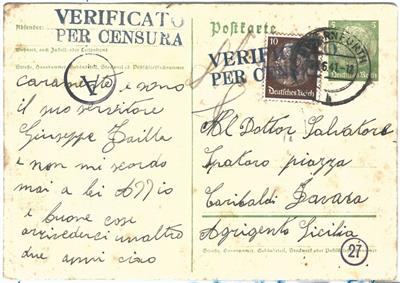 Absender:
VERIFICATO
PER CENSURA
Wohnort, auch Zustell- oder Leitpostamt
Straße, Hausnummer, Gebäudeteil, Stockwerk od. Postschließfachnummer
A
caramente e sono
il suo servitore
Giuseppe Tailla
e non mi scordo
mai a lei Addio
e buone cose
arrivederci unaltro
due anni ciao
Postkarte
VERIFI
PER CE
10
Deutsches Reich
5
Deutsches Reich
6.41
b
Al Dottor Salvatore
Spatoro piazza
Garibaldi Favara
Agrigento Sicilia
Straße, Hausnummer, Gebäudeteil, Stockwerk oder Postschließfachnummer
27